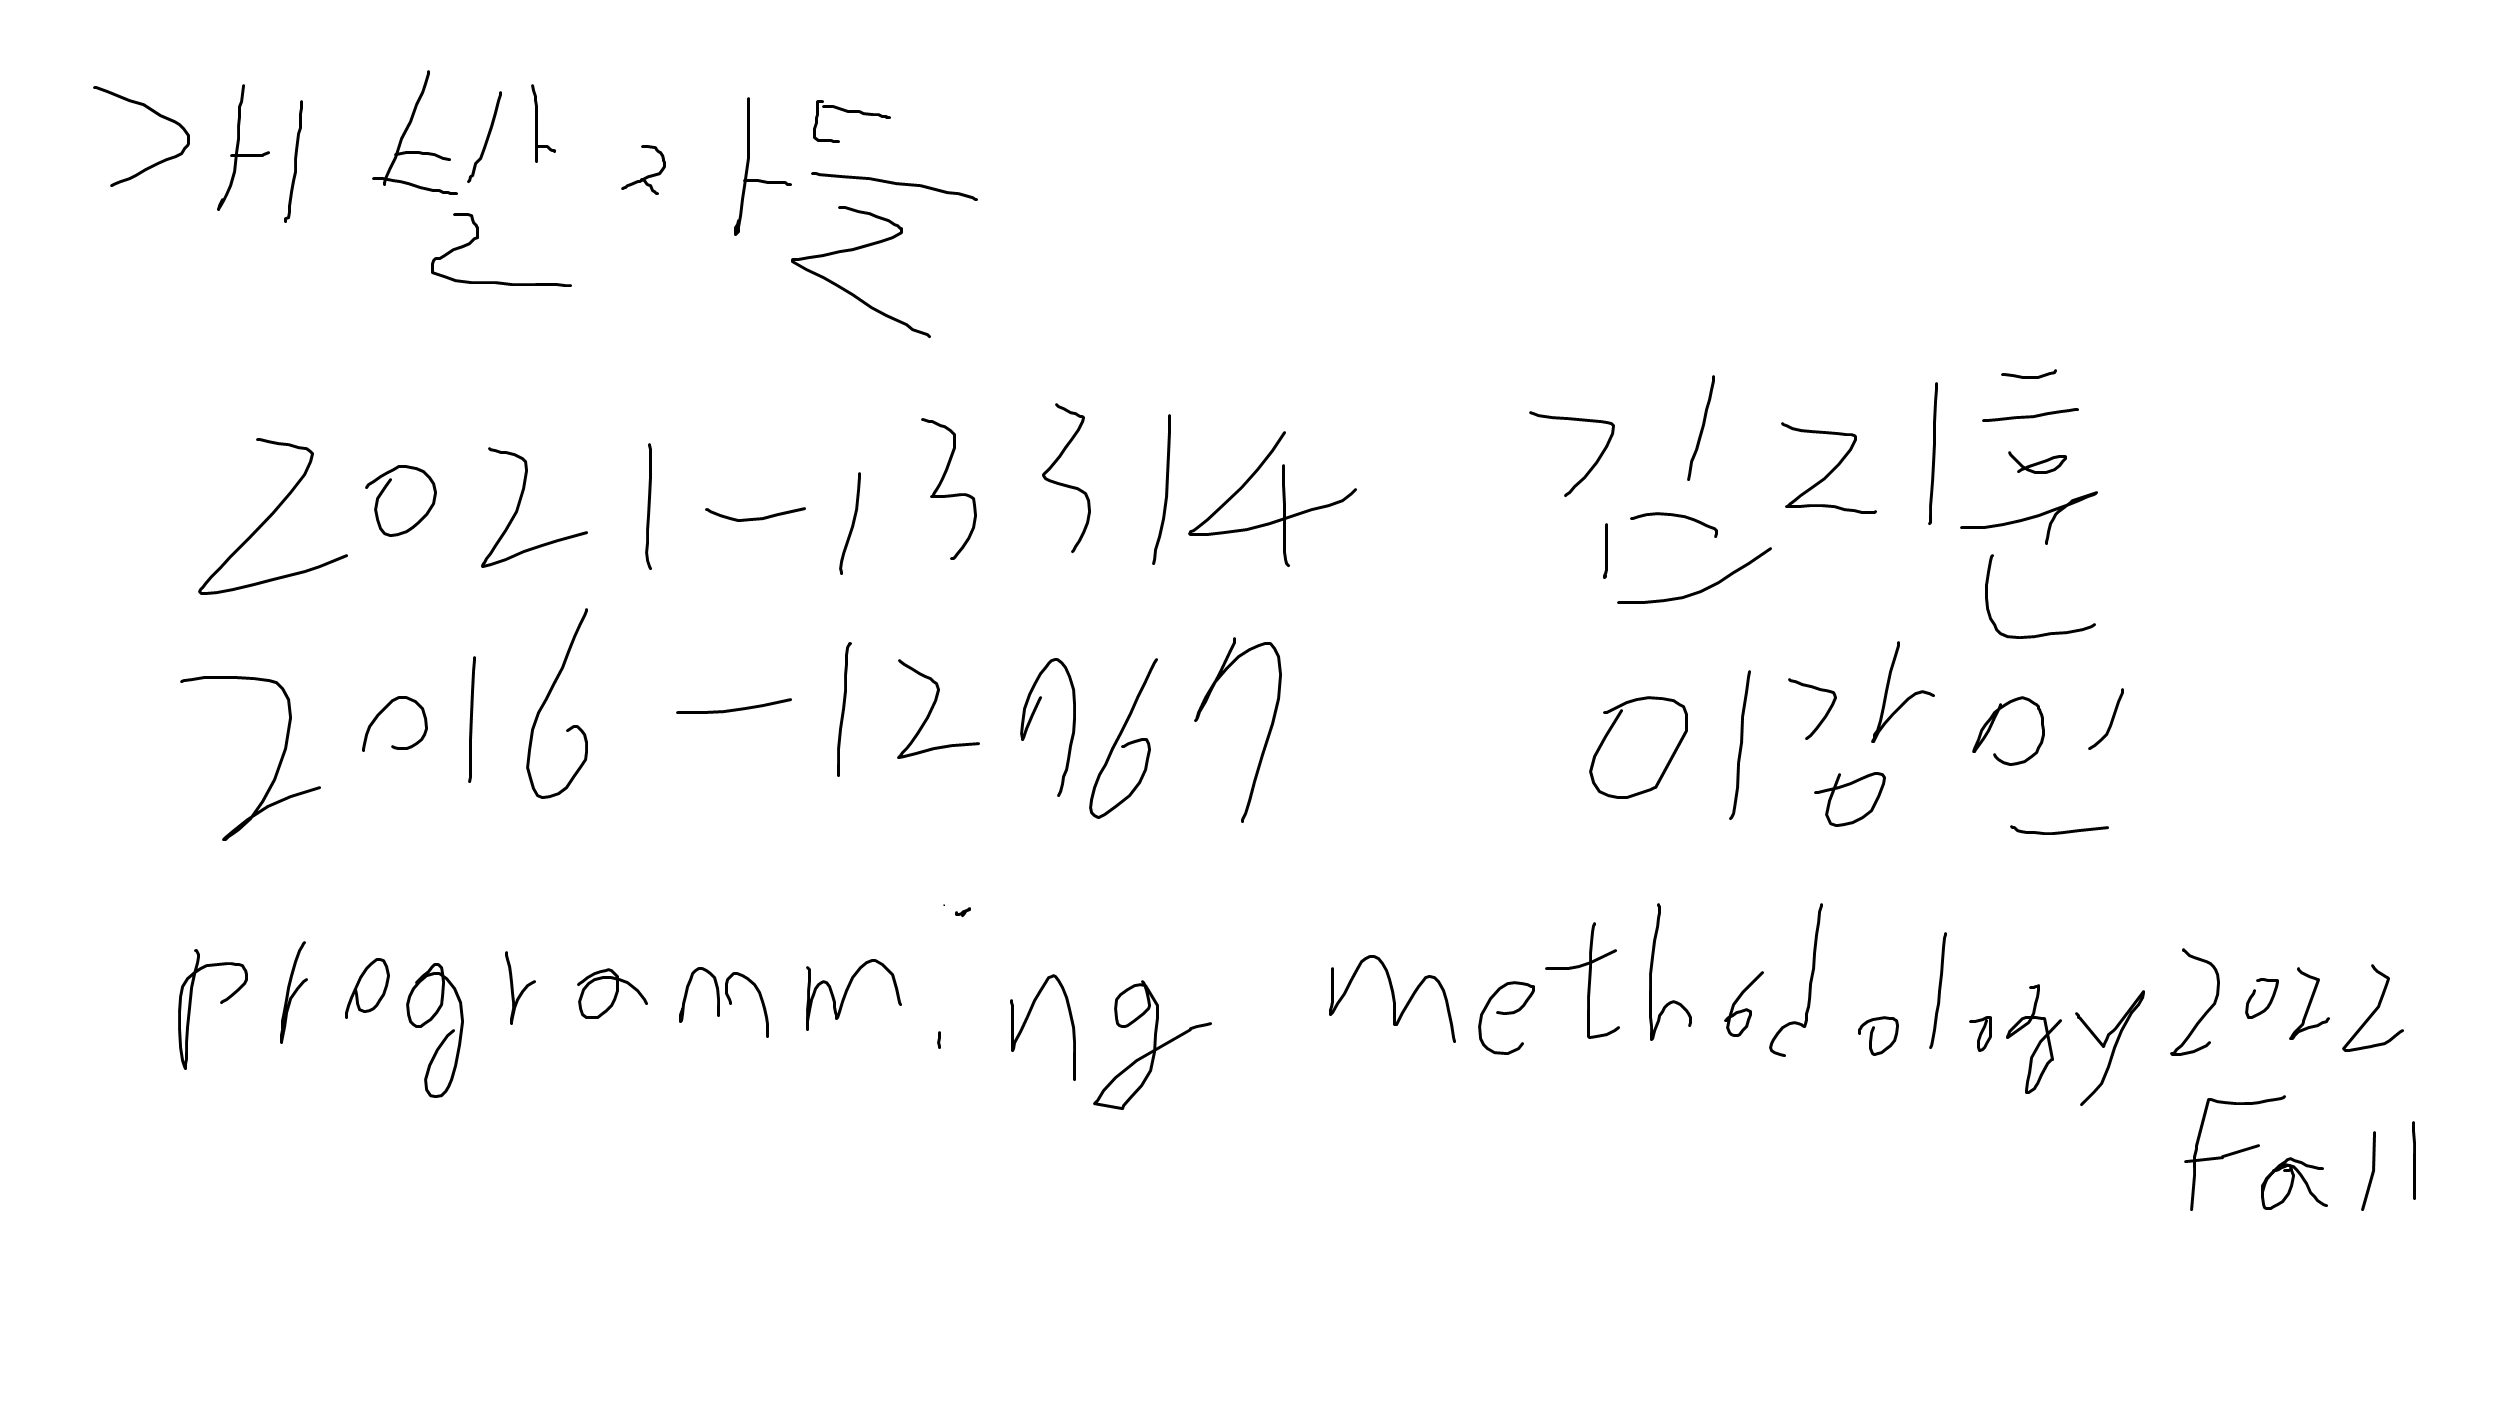 개발자들
2021-13314 김지훈
2016-12967 이강인
Programming methodology 2022
Fall